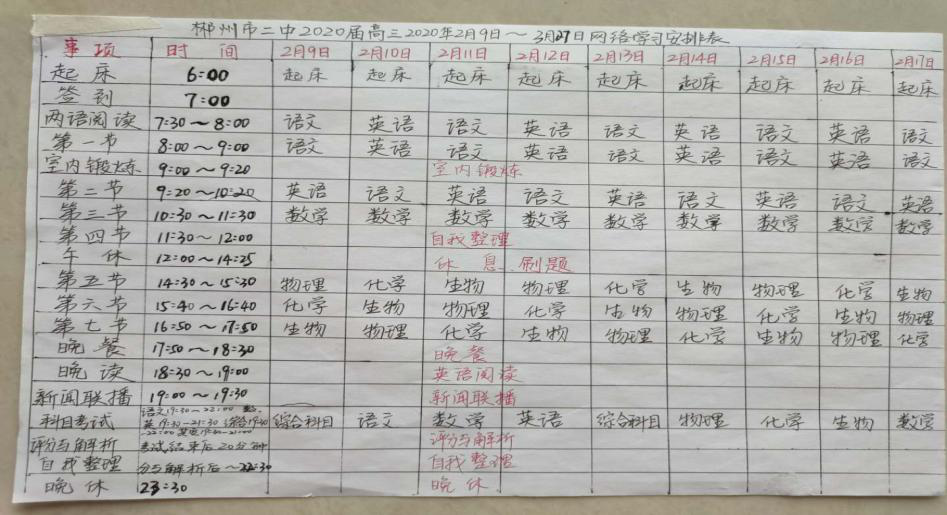 郴州市二中2020届高三2020年2月9日～3月27日网络学习安排表
事项 时间 2月9日 2月10日 2月11日 2月12日 2月13日 2月14日 2月15日 2月16日 2月17日
起床 6:00 起床 起床 起床 起床 起床 起床 起床 起床 起床
签到 7:00
两语阅读 7:30～8:00 语文 英语 语文 英语 语文 英语 语文 英语 语文
第一节 8:00～9:00 语文 英语 语文 英语 语文 英语 语文 英语 语文
室内锻炼 9:00～9:20 室内锻炼
第二节 9:20～10:20 英语 语文 英语 语文 英语 语文 英语 语文 英语
第三节 10:30～11:30 数学 数学 数学 数学 数学 数学 数学 数学 数学
第四节 11:30～12:00 自我整理
午休 12:00～14:25 休息、刷题
第五节 14:30～15:30 物理 化学 生物 物理 化学 生物 物理 化学 生物
第六节 15:40～16:40 化学 生物 物理 化学 生物 物理 化学 生物 物理
第七节 16:50～17:50 生物 物理 化学 生物 物理 化学 生物 物理 化学
晚餐 17:50～18:30 晚餐
晚读 18:30～19:00 英语阅读
新闻联播 19:00～19:30 新闻联播
科目考试 语文19:30～22:00 综合科目 语文 数学 英语 综合科目 物理 化学 生物 数学
评分与解析 考试结束后20分钟 评分与解析
自我整理 分与解析后～22:30 自我整理
晚休 23:30 晚休